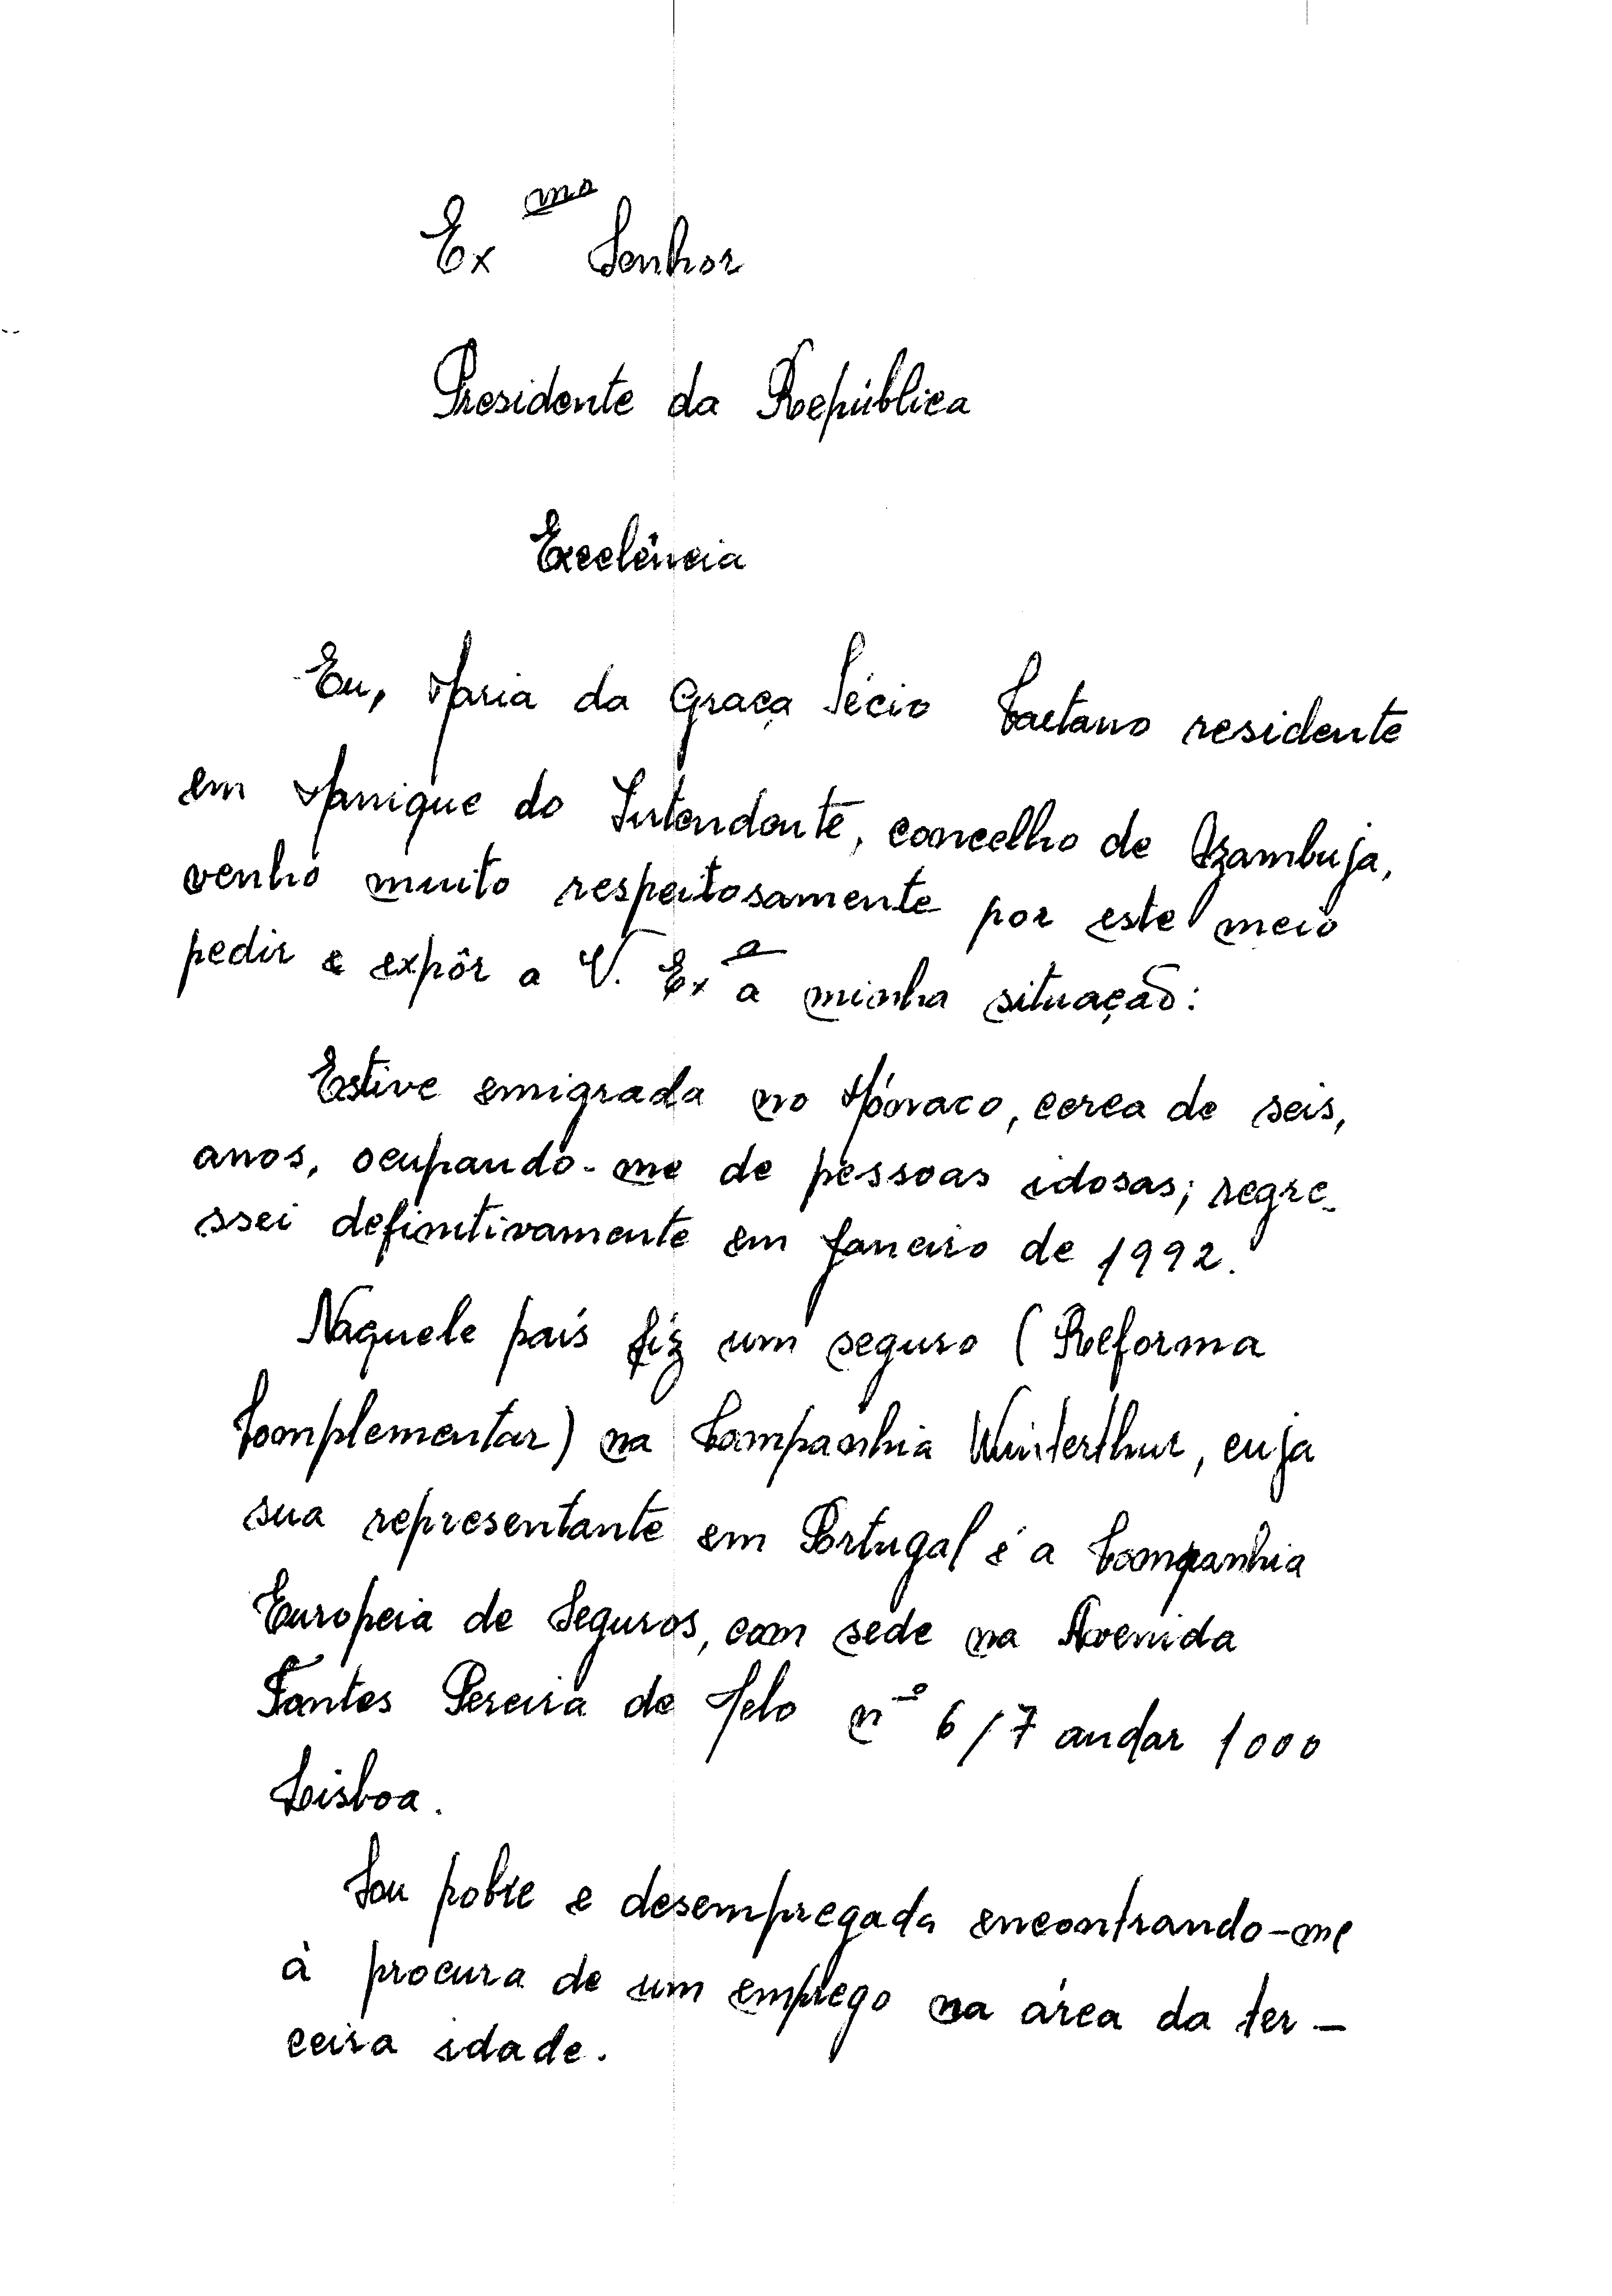 Ex mo Senhor
Presidente da República
Excelência
Eu, Maria da Graça Sécio Caetano residente
em Manique do Intendente, concelho de Azambuja,
venho muito respeitosamente por este meio
pedir e expôr a V. Ex a a minha situação:
Estive emigrada no Mónaco, cerca de seis,
anos, ocupando-me de pessoas idosas; regre-
ssei definitivamente em Janeiro de 1992.
Naquele país fiz um seguro (Reforma
Complementar) na Companhia Winterthur, cuja
sua representante em Portugal é a Companhia
Europeia de Seguros, com sede na Avenida
Fontes Pereira de Melo nº 6/7 andar 1000
Lisboa.
Sou pobre e desempregada encontrando-me
à procura de um emprego na área da ter-
ceira idade.